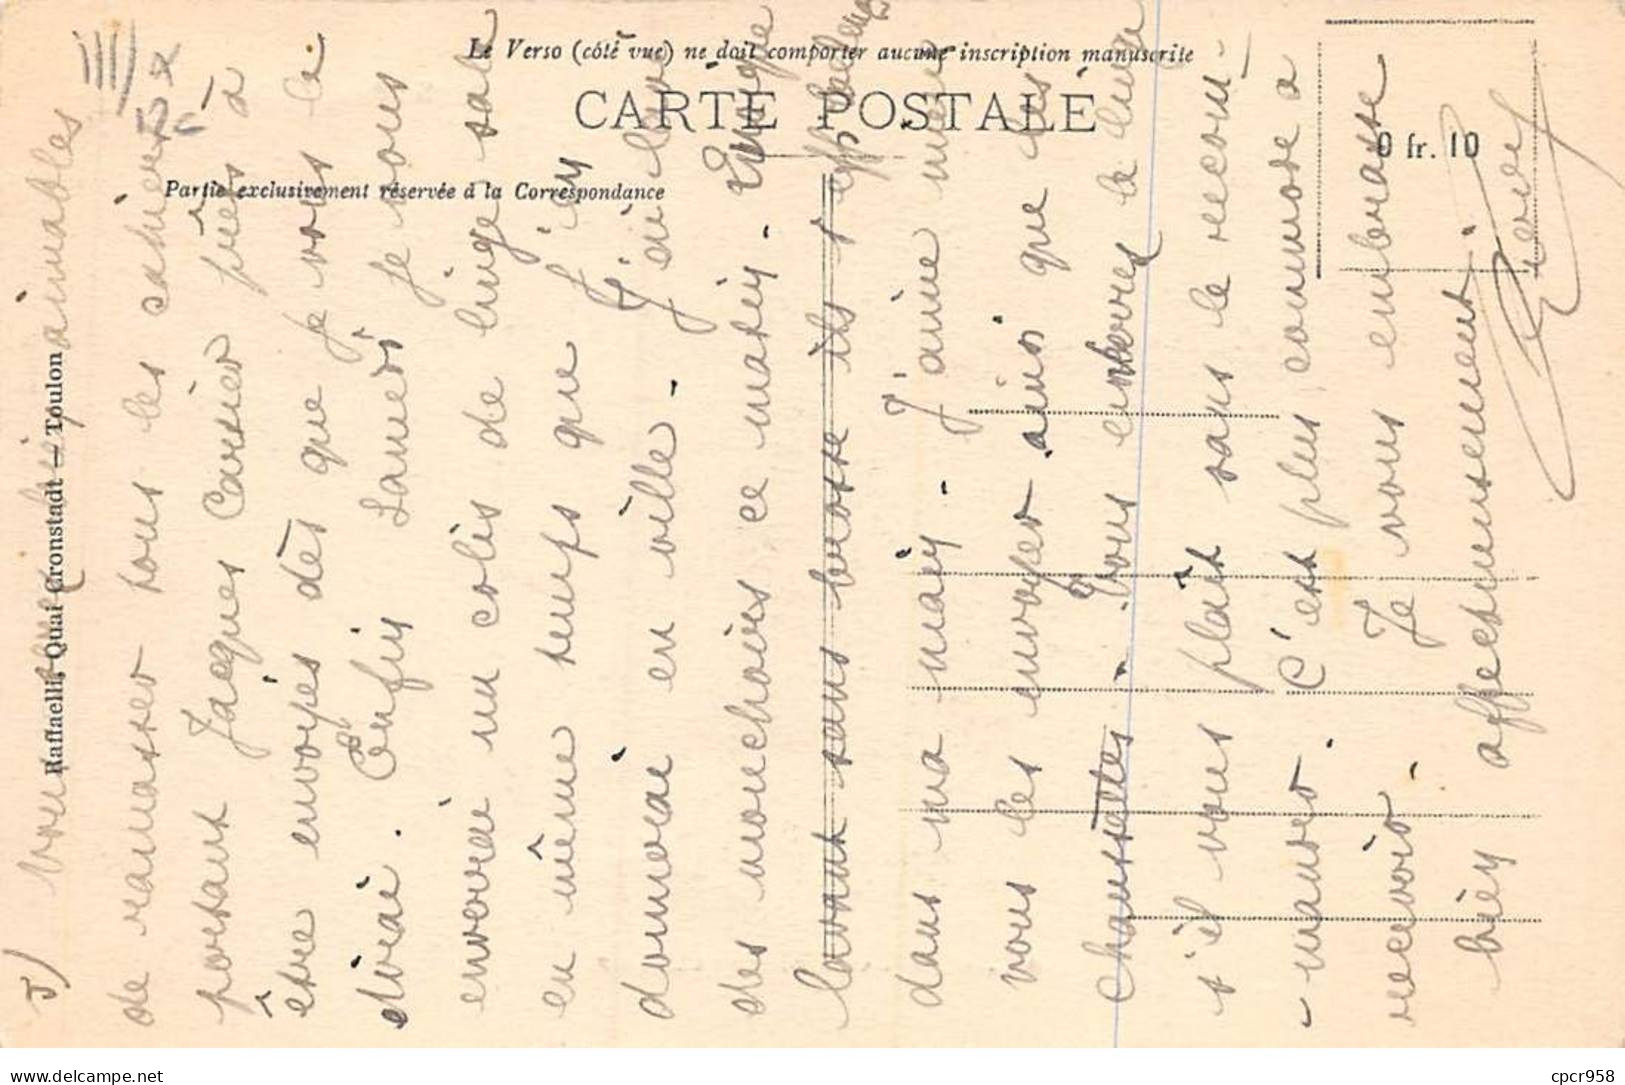 Le Verso (côté vue) ne doit comporter aucune inscription manuscrite
CARTE POSTALE
Partie exclusivement réservée à la Correspondance
0 fr. 10
Raffaelli, Quai Cronstadt — Toulon
5/ aimables
de ramasser tous les cahiers
portant Jacques Carsier prêts à
être envoyés dès que je vous le
dirai. Enfin Samedi je vous
enverrai un colis de linge sale
en même temps que j'en
donnerai en ville. J'ai lavé
des mouchoirs ce matin.
lavant sans brosse ils s'
dans ma main. J'aime mieux
vous les envoyer ainsi que les
chaussettes. Vous enverrez le linge
s'il vous plaît sans le recom-
-mander. C'est plus commode à
recevoir. Je vous embrasse
bien affectueusement.
Pierre
cpcr958